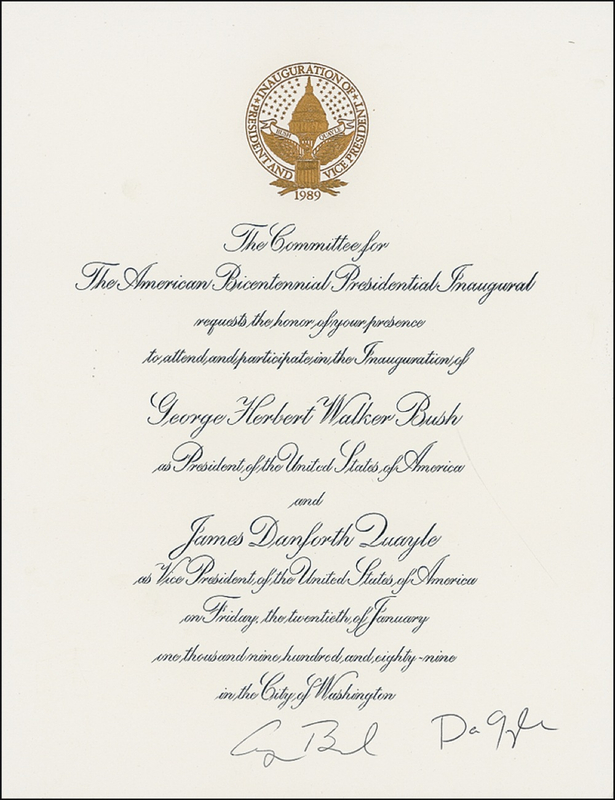 INAUGURATION OF
PRESIDENT AND
VICE PRESIDENT
BUSH QUAYLE
1989
The Committee for
The American Bicentennial Presidential Inaugural
requests the honor of your presence
to attend and participate in the Inauguration of
George Herbert Walker Bush
as President of the United States of America
and
James Danforth Quayle
as Vice President of the United States of America
on Friday, the twentieth of January
one thousand nine hundred and eighty-nine
in the City of Washington